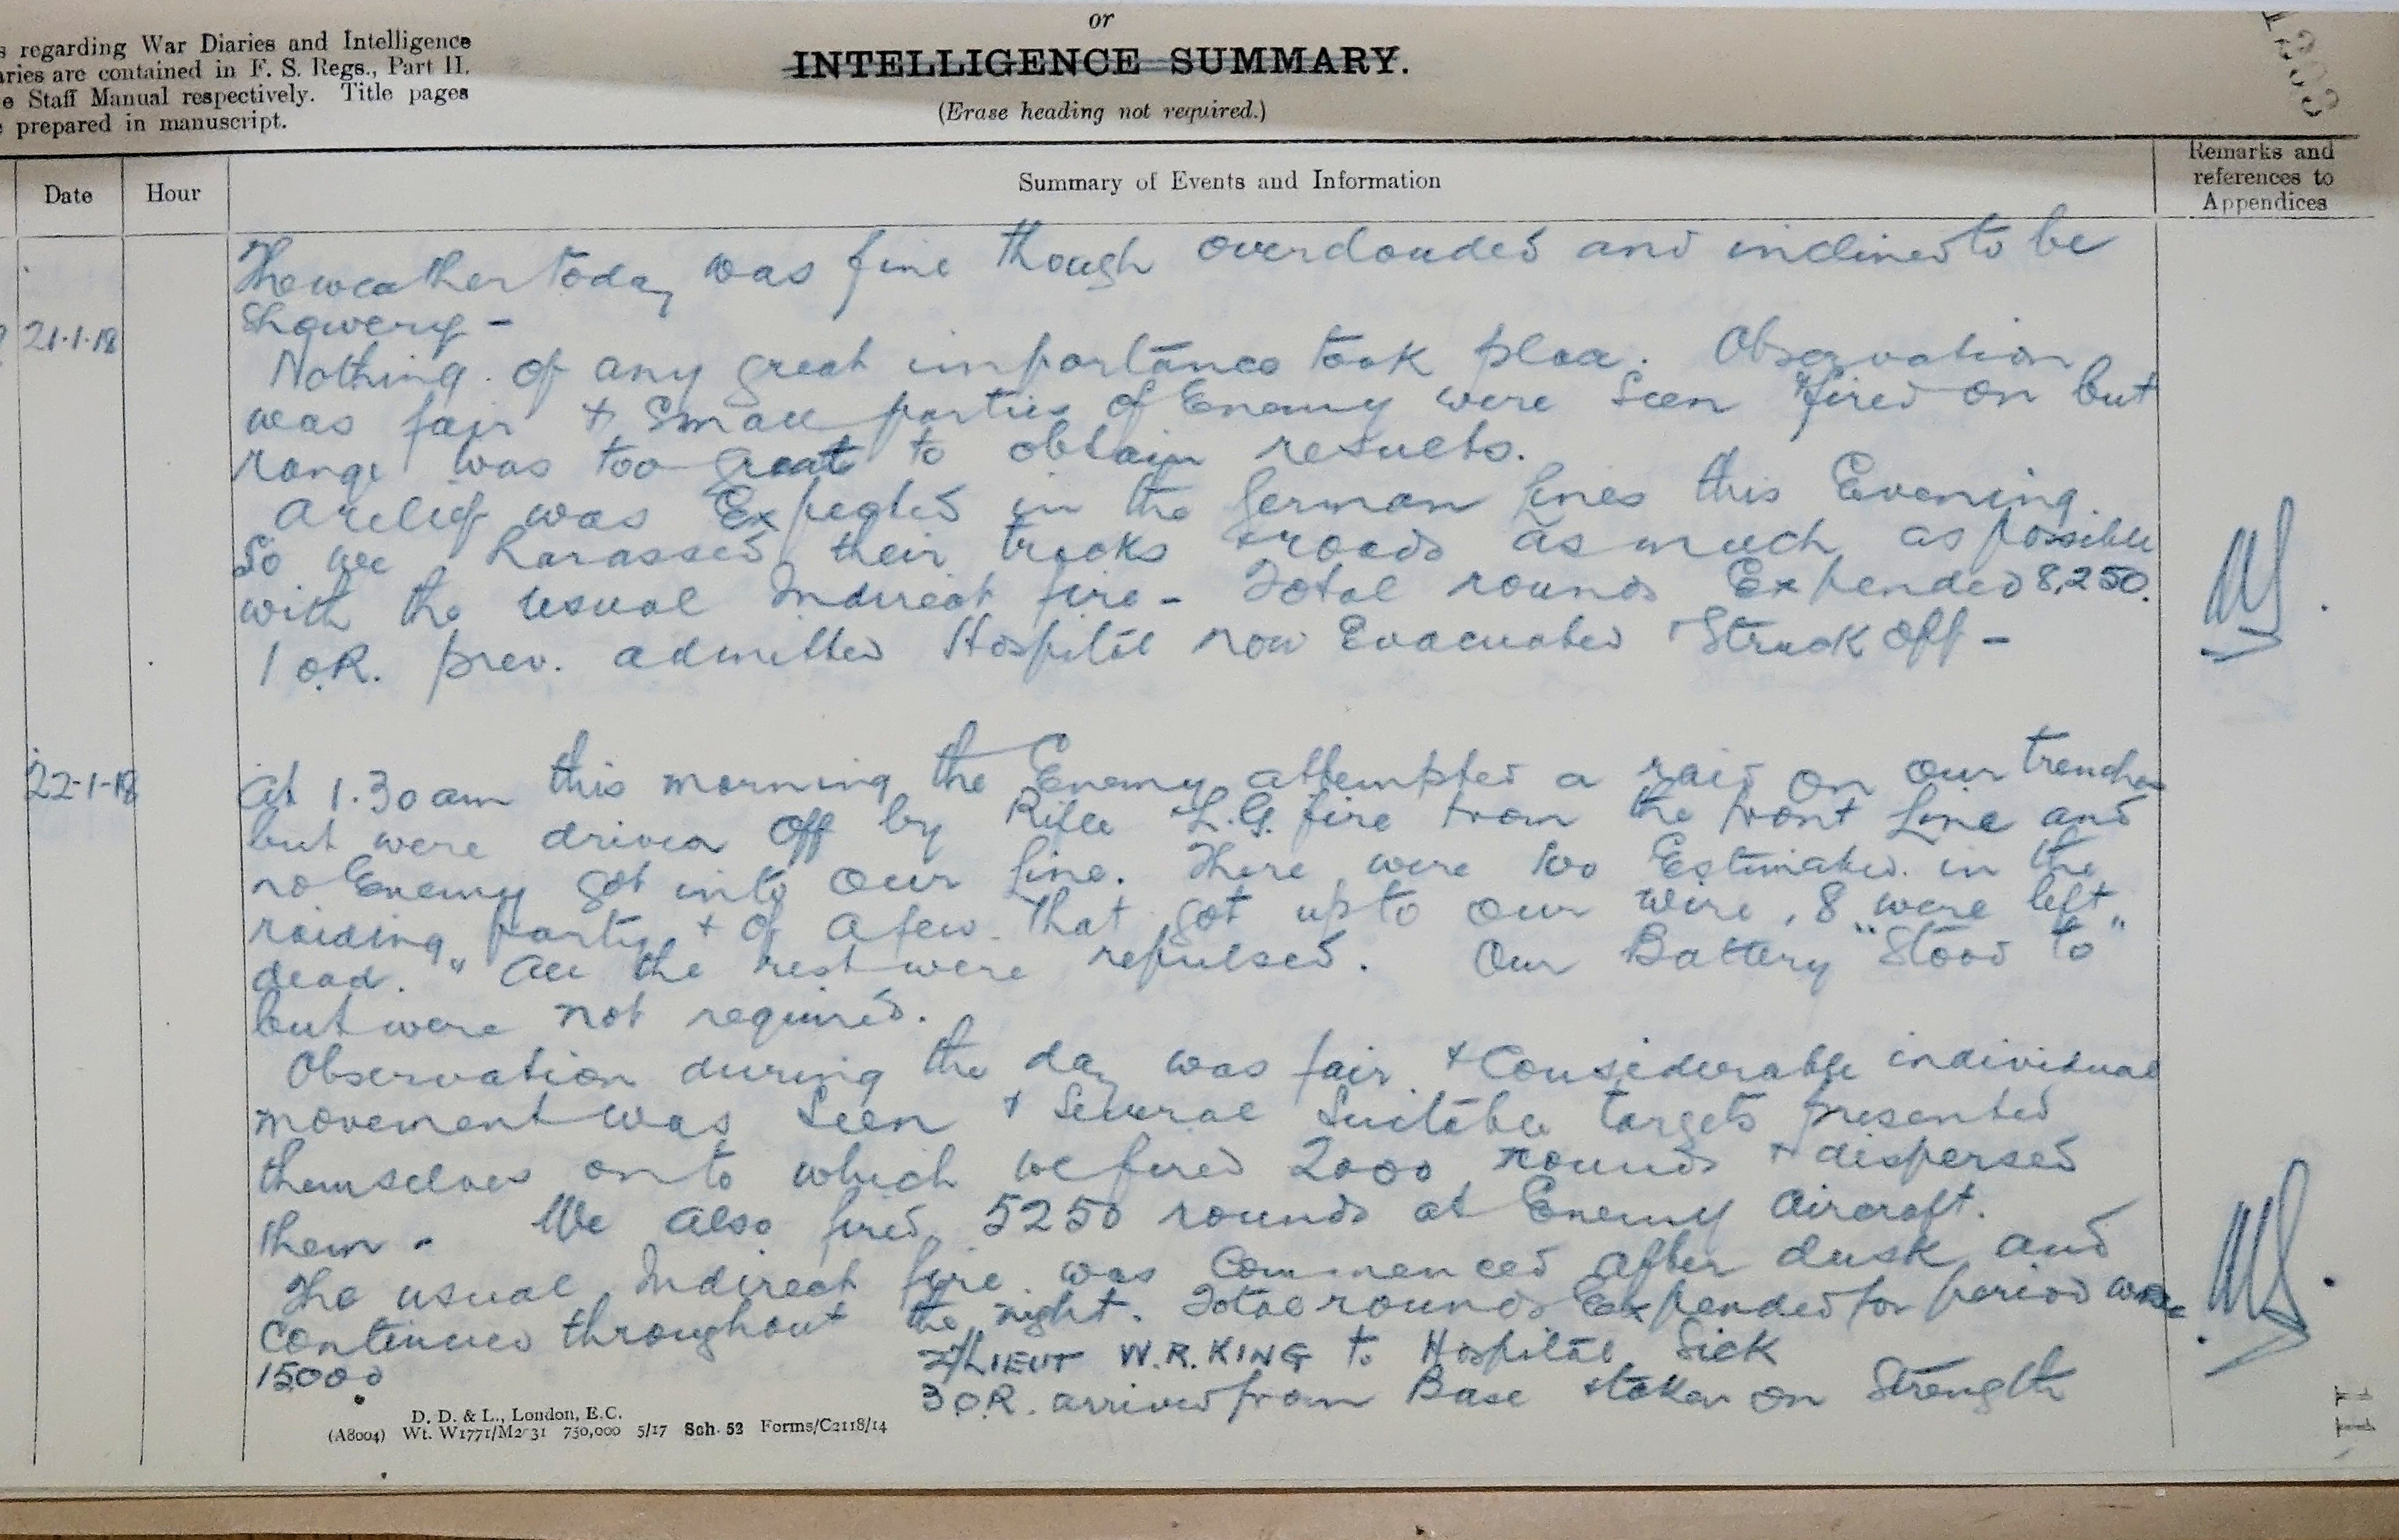 or
INTELLIGENCE SUMMARY.
(Erase heading not required.)
s regarding War Diaries and Intelligence
aries are contained in F. S. Regs., Part II.
e Staff Manual respectively. Title pages
e prepared in manuscript.
1303
Date
Hour
Summary of Events and Information
Remarks and
references to
Appendices
The weather today was fine though overclouded and inclined to be
Showery -
21.1.18
Nothing of any great importance took place. Observation
was fair & small parties of Enemy were seen & fired on but
range was too great to obtain results.
A relief was Expected in the German lines this Evening.
So we harassed their tracks & roads as much as possible
with the usual Indirect fire - Total rounds Expended 8,250.
1 O.R. prev. admitted Hospital now Evacuated & Struck off -
22-1-18
At 1.30am this morning the Enemy attempted a raid on our trenches
but were driven off by Rifle & L.G. fire from the front line and
no Enemy got into our line. There were 100 Estimated in the
raiding party & of a few that got up to our wire, 8 "were left
dead." All the rest were repulsed. Our Battery "Stood to"
but were not required.
Observation during the day was fair & Considerable individual
movement was seen & several suitable targets presented
themselves on to which we fired 2000 rounds & dispersed
them - We also fired 5250 rounds at Enemy aircraft.
The usual Indirect fire was Commenced after dusk and
continued throughout the night. Total rounds Expended for period were
15000
2/LIEUT W.R. KING to Hospital Sick
3 O.R. arrived from Base & taken on Strength
D. D. & L., London, E.C.
(A8004) Wt. W1771/M2 31 750,000 5/17 Sch. 52 Forms/C2118/14